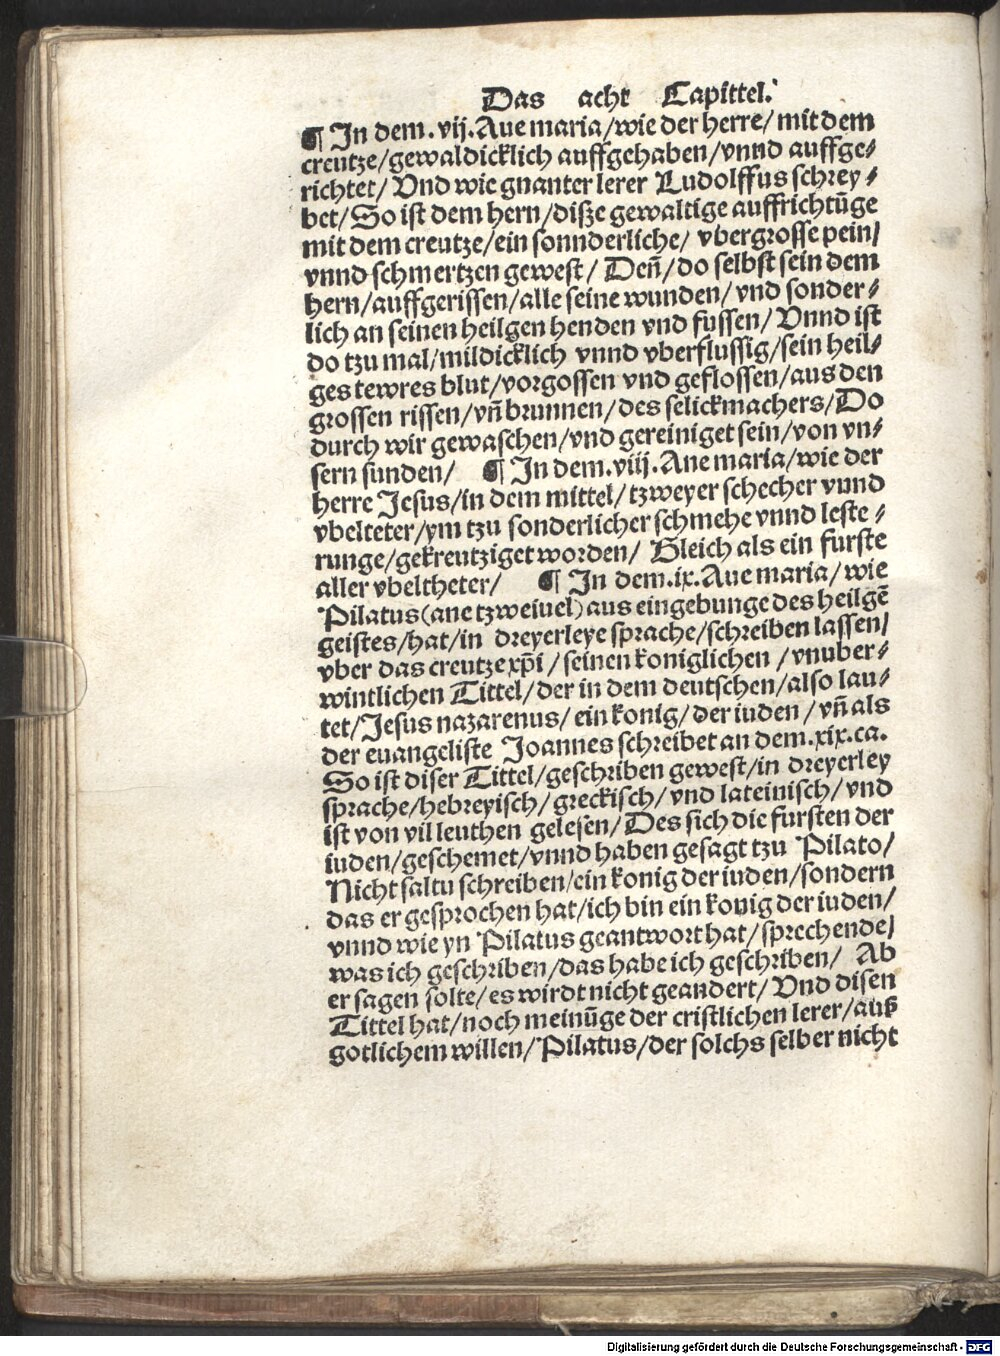 Das acht Capittel.
¶ In dem .vij. Aue maria/wie der herre/ mit dem
creutze/gewaldicklich auffgehaben/vnnd auffge⸗
richtet/ Vnd wie gnanter lerer Ludolffus schrey⸗
bet/ So ist dem hern/diße gewaltige auffrichtūge
mit dem creutze/ein sonnderliche/ vbergrosse pein/
vnnd schmertzen gewest/ Deñ/do selbst sein dem
hern/auffgerissen/alle seine wunden/vnd sonder⸗
lich an seinen heilgen henden vnd fussen/ Vnnd ist
do tzu mal/mildicklich vnnd vberflussig/sein heil⸗
ges tewres blut/vorgossen vnd geflossen/aus den
grossen rissen/vñ brunnen/des selickmachers/Do
durch wir gewaschen/vnd gereiniget sein/von vn⸗
sern sunden/ ¶ In dem .viii. Ane maria/wie der
herre Jesus/in dem mittel/tzweyer schecher vnnd
vbelteter/ym tzu sonderlicher schmehe vnnd leste⸗
runge/gekreutziget worden/ Gleich als ein furste
aller vbeltheter/ ¶ In dem .ix. Aue maria/wie
Pilatus(ane tzweiuel)aus eingebunge des heilgē
geistes/hat/in dreyerleye sprache/schreiben lassen/
vber das creutze xp̄i/seinen koniglichen/vnuber⸗
wintlichen Tittel/der in dem deutschen/also lau⸗
tet/Jesus nazarenus/ein konig/der iuden/vñ als
der euangeliste Joannes schreibet an dem .xix. ca.
So ist diser Tittel/geschriben gewest/in dreyerley
sprache/hebreyisch/greckisch/vnd lateinisch/vnd
ist von vil leuthen gelesen/Des sich die fursten der
iuden/geschemet/vnnd haben gesagt tzu Pilato/
Nicht saltu schreiben/ein konig der iuden/sondern
das er gesprochen hat/ich bin ein konig der iuden/
vnnd wie yn Pilatus geantwort hat/sprechende/
was ich geschriben/das habe ich geschriben/ Ab
er sagen solte/es wirdt nicht geandert/ Vnd disen
Tittel hat/noch meinūge der cristlichen lerer/auß
gotlichem willen/Pilatus/der solchs selber nicht
Digitalisierung gefördert durch die Deutsche Forschungsgemeinschaft - DFG